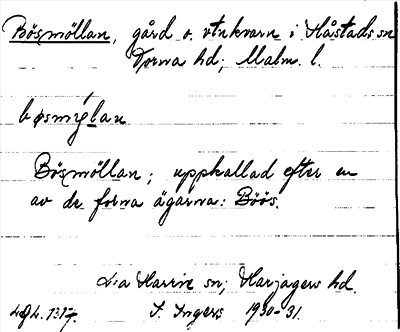 Bösmöllan, gård o. vtnkvarn i Håstads sn
Torna hd, Malm. l.
bøsmýlan
Bösmöllan; uppkallad efter en
av de forna ägarna: Böös.
L:a Harrie sn, Harjagers hd.
I. Ingers 1930-31.